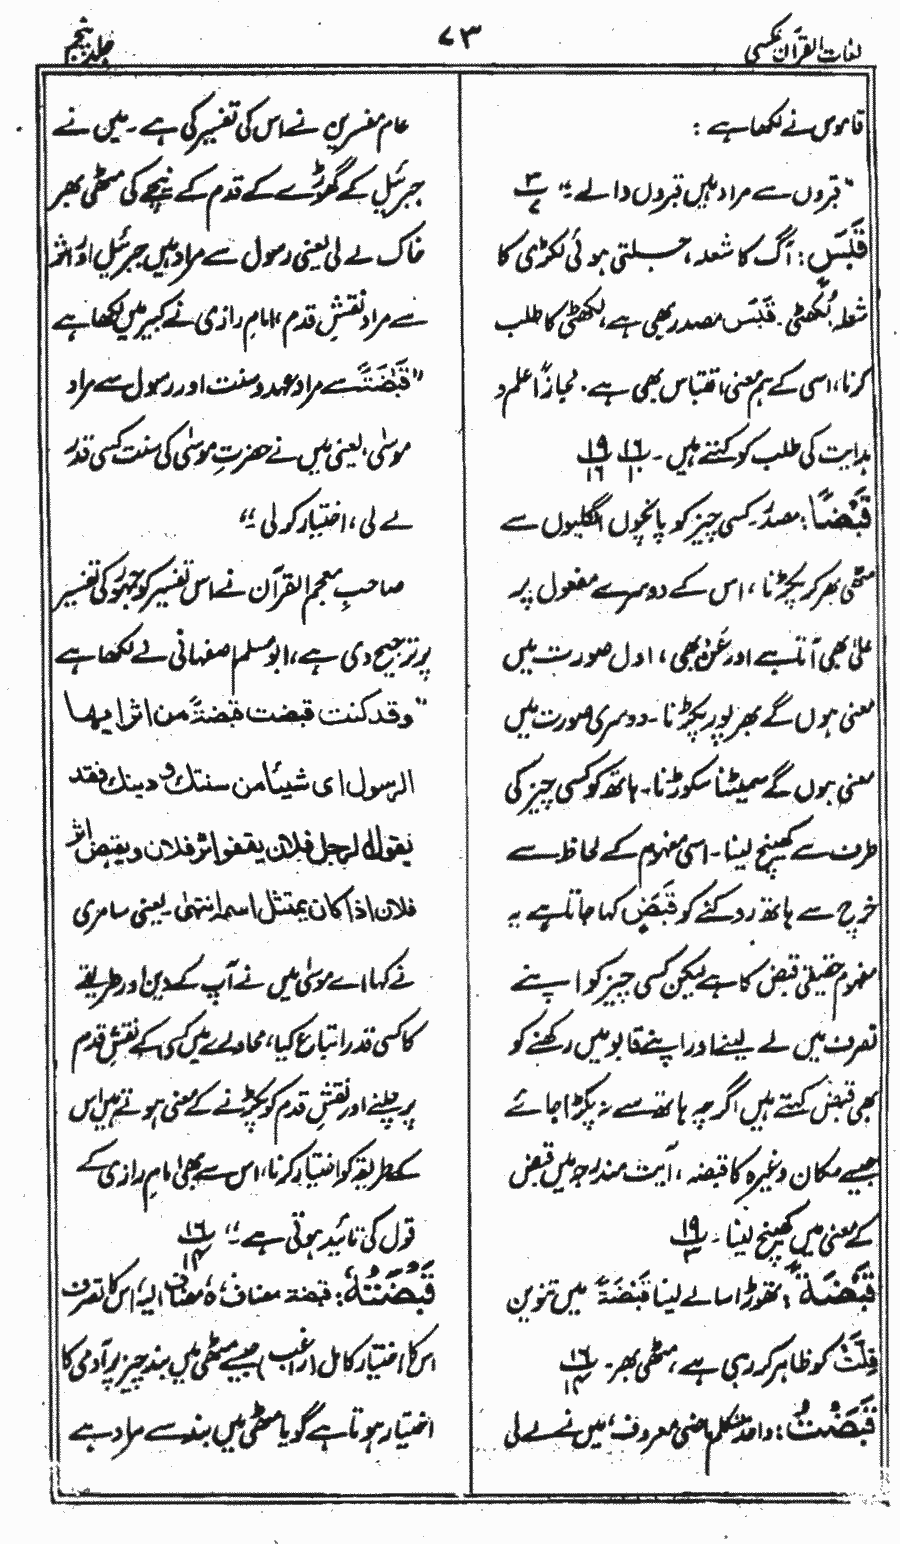 لغات القرآن نکسی
۷۳
جلد پنجم
قاموس نے لکھا ہے :
"قبروں سے مراد ہیں قبروں والے" ۳/۷
قَبَسٍ : آگ کا شعلہ، جلتی ہوئی لکڑی کا
شعلہ، لکھٹی۔ قَبَسَ مصدر بھی ہے، لکھٹی کا طلب
کرنا، اسی کے ہم معنی اقتباس بھی ہے۔ مجازاً علم و
ہدایت کی طلب کو کہتے ہیں۔ ۱۶/۱۰ ۱۹/۱۶
قَبْضًا : مصدر۔ کسی چیز کو پانچوں انگلیوں سے
مٹھی بھر کر پکڑنا، اس کے دوسرے مفعول پر
علیٰ بھی آتا ہے اور عَنْ بھی، اول صورت میں
معنی ہوں گے بھرپور پکڑنا۔ دوسری صورت میں
معنی ہوں گے سمیٹنا سکوڑنا۔ ہاتھ کو کسی چیز کی
طرف سے کھینچ لینا۔ اسی مفہوم کے لحاظ سے
خرچ سے ہاتھ روکنے کو قَبَضَ کہا جاتا ہے یہ
مفہوم حقیقی قبض کا ہے لیکن کسی چیز کو اپنے
تصرف میں لے لینے اور اپنے قابو میں رکھنے کو
بھی قبض کہتے ہیں اگرچہ ہاتھ سے نہ پکڑا جائے
جیسے مکان وغیرہ کا قبضہ، آیت مندرجہ میں قبض
کے معنی میں کھینچ لینا۔ ۱۹/۳
قَبْضَةً : تھوڑا سا لے لینا قَبْضَةً میں تنوین
قِلَّتْ کو ظاہر کر رہی ہے، مٹھی بھر۔ ۱۶/۱۴
قَبَضْتُ : واحد متکلم ماضی معروف، میں نے لے لی
عام مفسرین نے اس کی تفسیر کی ہے۔ میں نے
جبرئیل کے گھوڑے کے قدم کے نیچے کی مٹھی بھر
خاک لے لی یعنی رسول سے مراد ہیں جبرئیل اور اثر
سے مراد نقشِ قدم، امام رازی نے کبیر میں لکھا ہے
"قَبْضَةً سے مراد عہد و سنت اور رسول سے مراد
موسیٰ، یعنی میں نے حضرتِ موسیٰ کی سنت کسی قدر
لے لی، اختیار کر لی"
صاحبِ معجم القرآن نے اس تفسیر کو جمہور کی تفسیر
پر ترجیح دی ہے، ابو مسلم اصفہانی نے لکھا ہے
"وقد كنت قبضت قبضة من اثر ایہا
الرسول ای شیئا من سنتك و دينك فقد
يقول الرجل فلان يقفو اثر فلان ويقبض اثر
فلان اذا كان يمتثل اسمه انتهىٰ۔ یعنی سامری
نے کہا اے موسیٰ میں نے آپ کے دین اور طریقے
کا کسی قدر اتباع کیا، محاورے میں کسی کے نقشِ قدم
پر چلنے اور نقشِ قدم کو پکڑنے کے معنی ہوتے ہیں اس
کے طریقہ کو اختیار کرنا، اس سے بھی امام رازی کے
قول کی تائید ہوتی ہے"۔ ۱۶/۱۴
قَبْضَتُهٗ : قبضة مضاف، ہٗ مضاف الیہ، اس کا تصرف
اس کا اختیار کامل (راغب) جیسے مٹھی میں بند چیز پر آدمی کا
اختیار ہوتا ہے گویا مٹھی میں بند سے مراد ہے